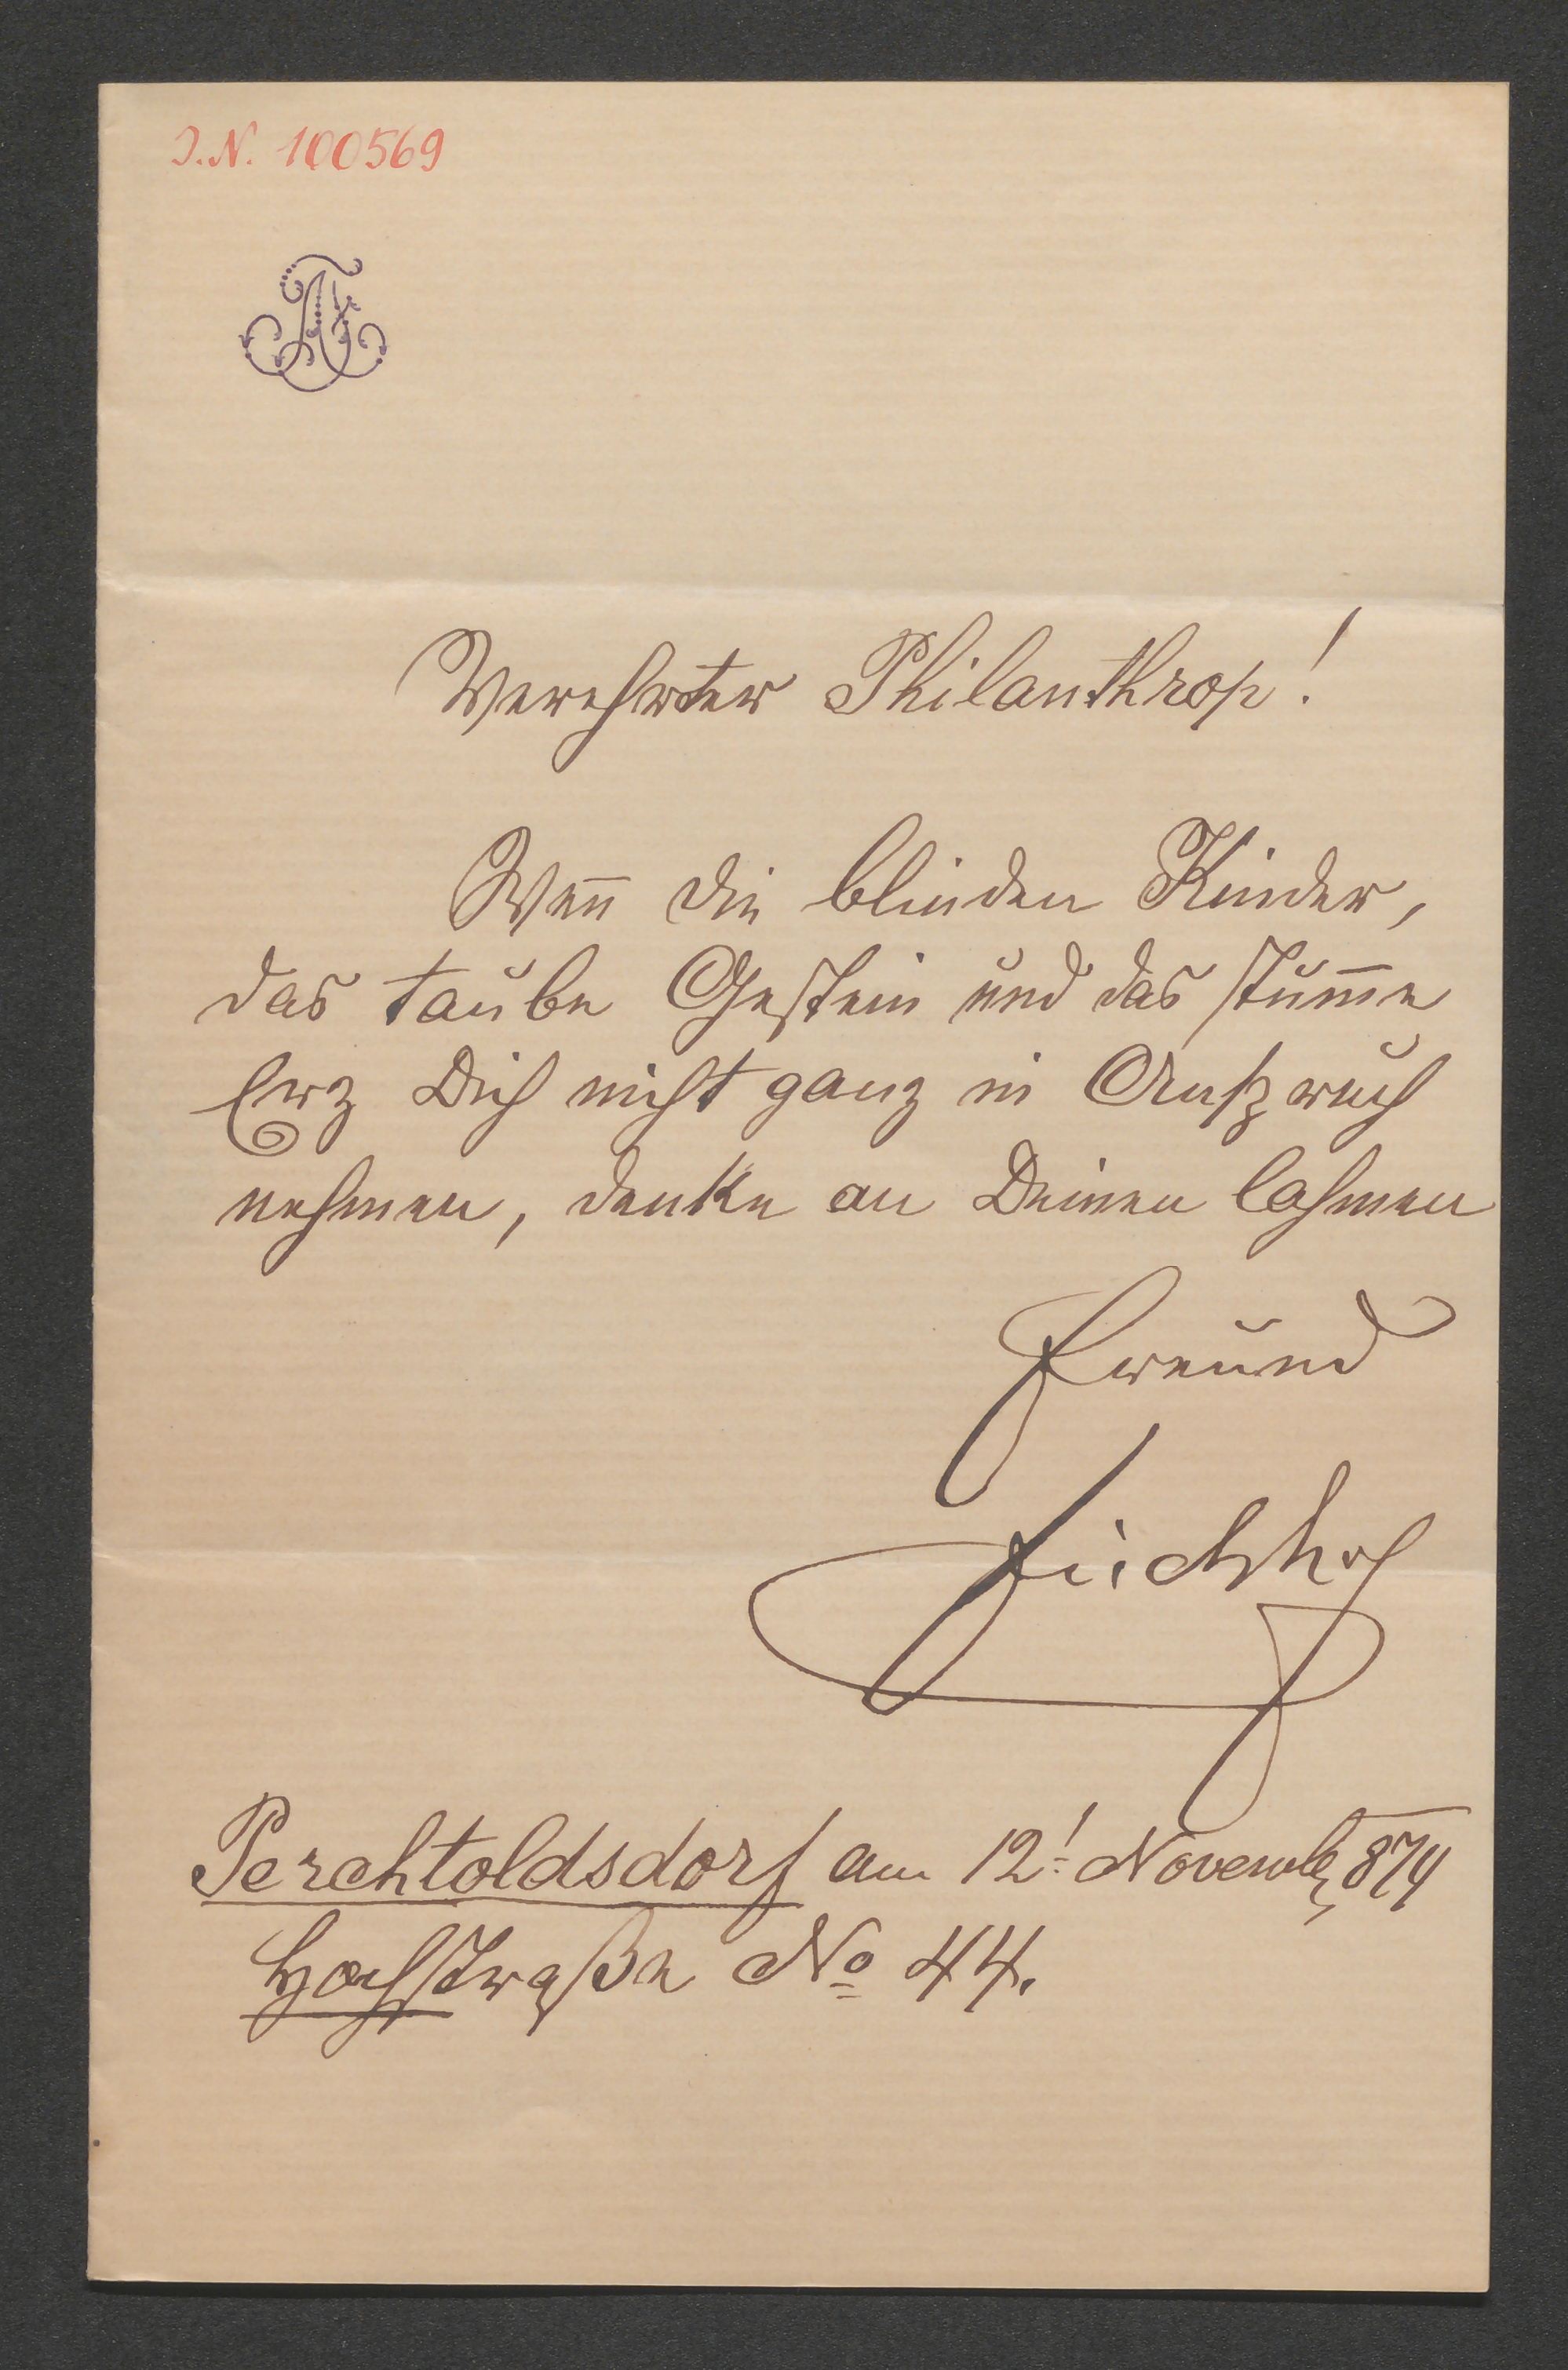 J.N. 100569
AF
Verehrter Philanthrop!
Weñ die blinden Kinder,
das taube Gestein und das stum̄e
Erz Dich nicht ganz in Anspruch
nehmen, denke an Deinen lahmen
Freund
Perchtoldsdorf am 12! Novemb 874
Hochstraße No 44.